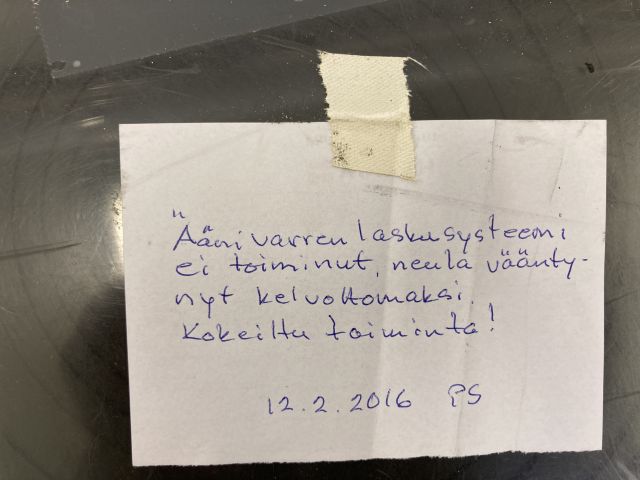 Äänivarren laskusysteemi
ei toiminut, neula väänty-
nyt kelvottomaksi.
Kokeiltu toiminta!
12.2.2016 PS